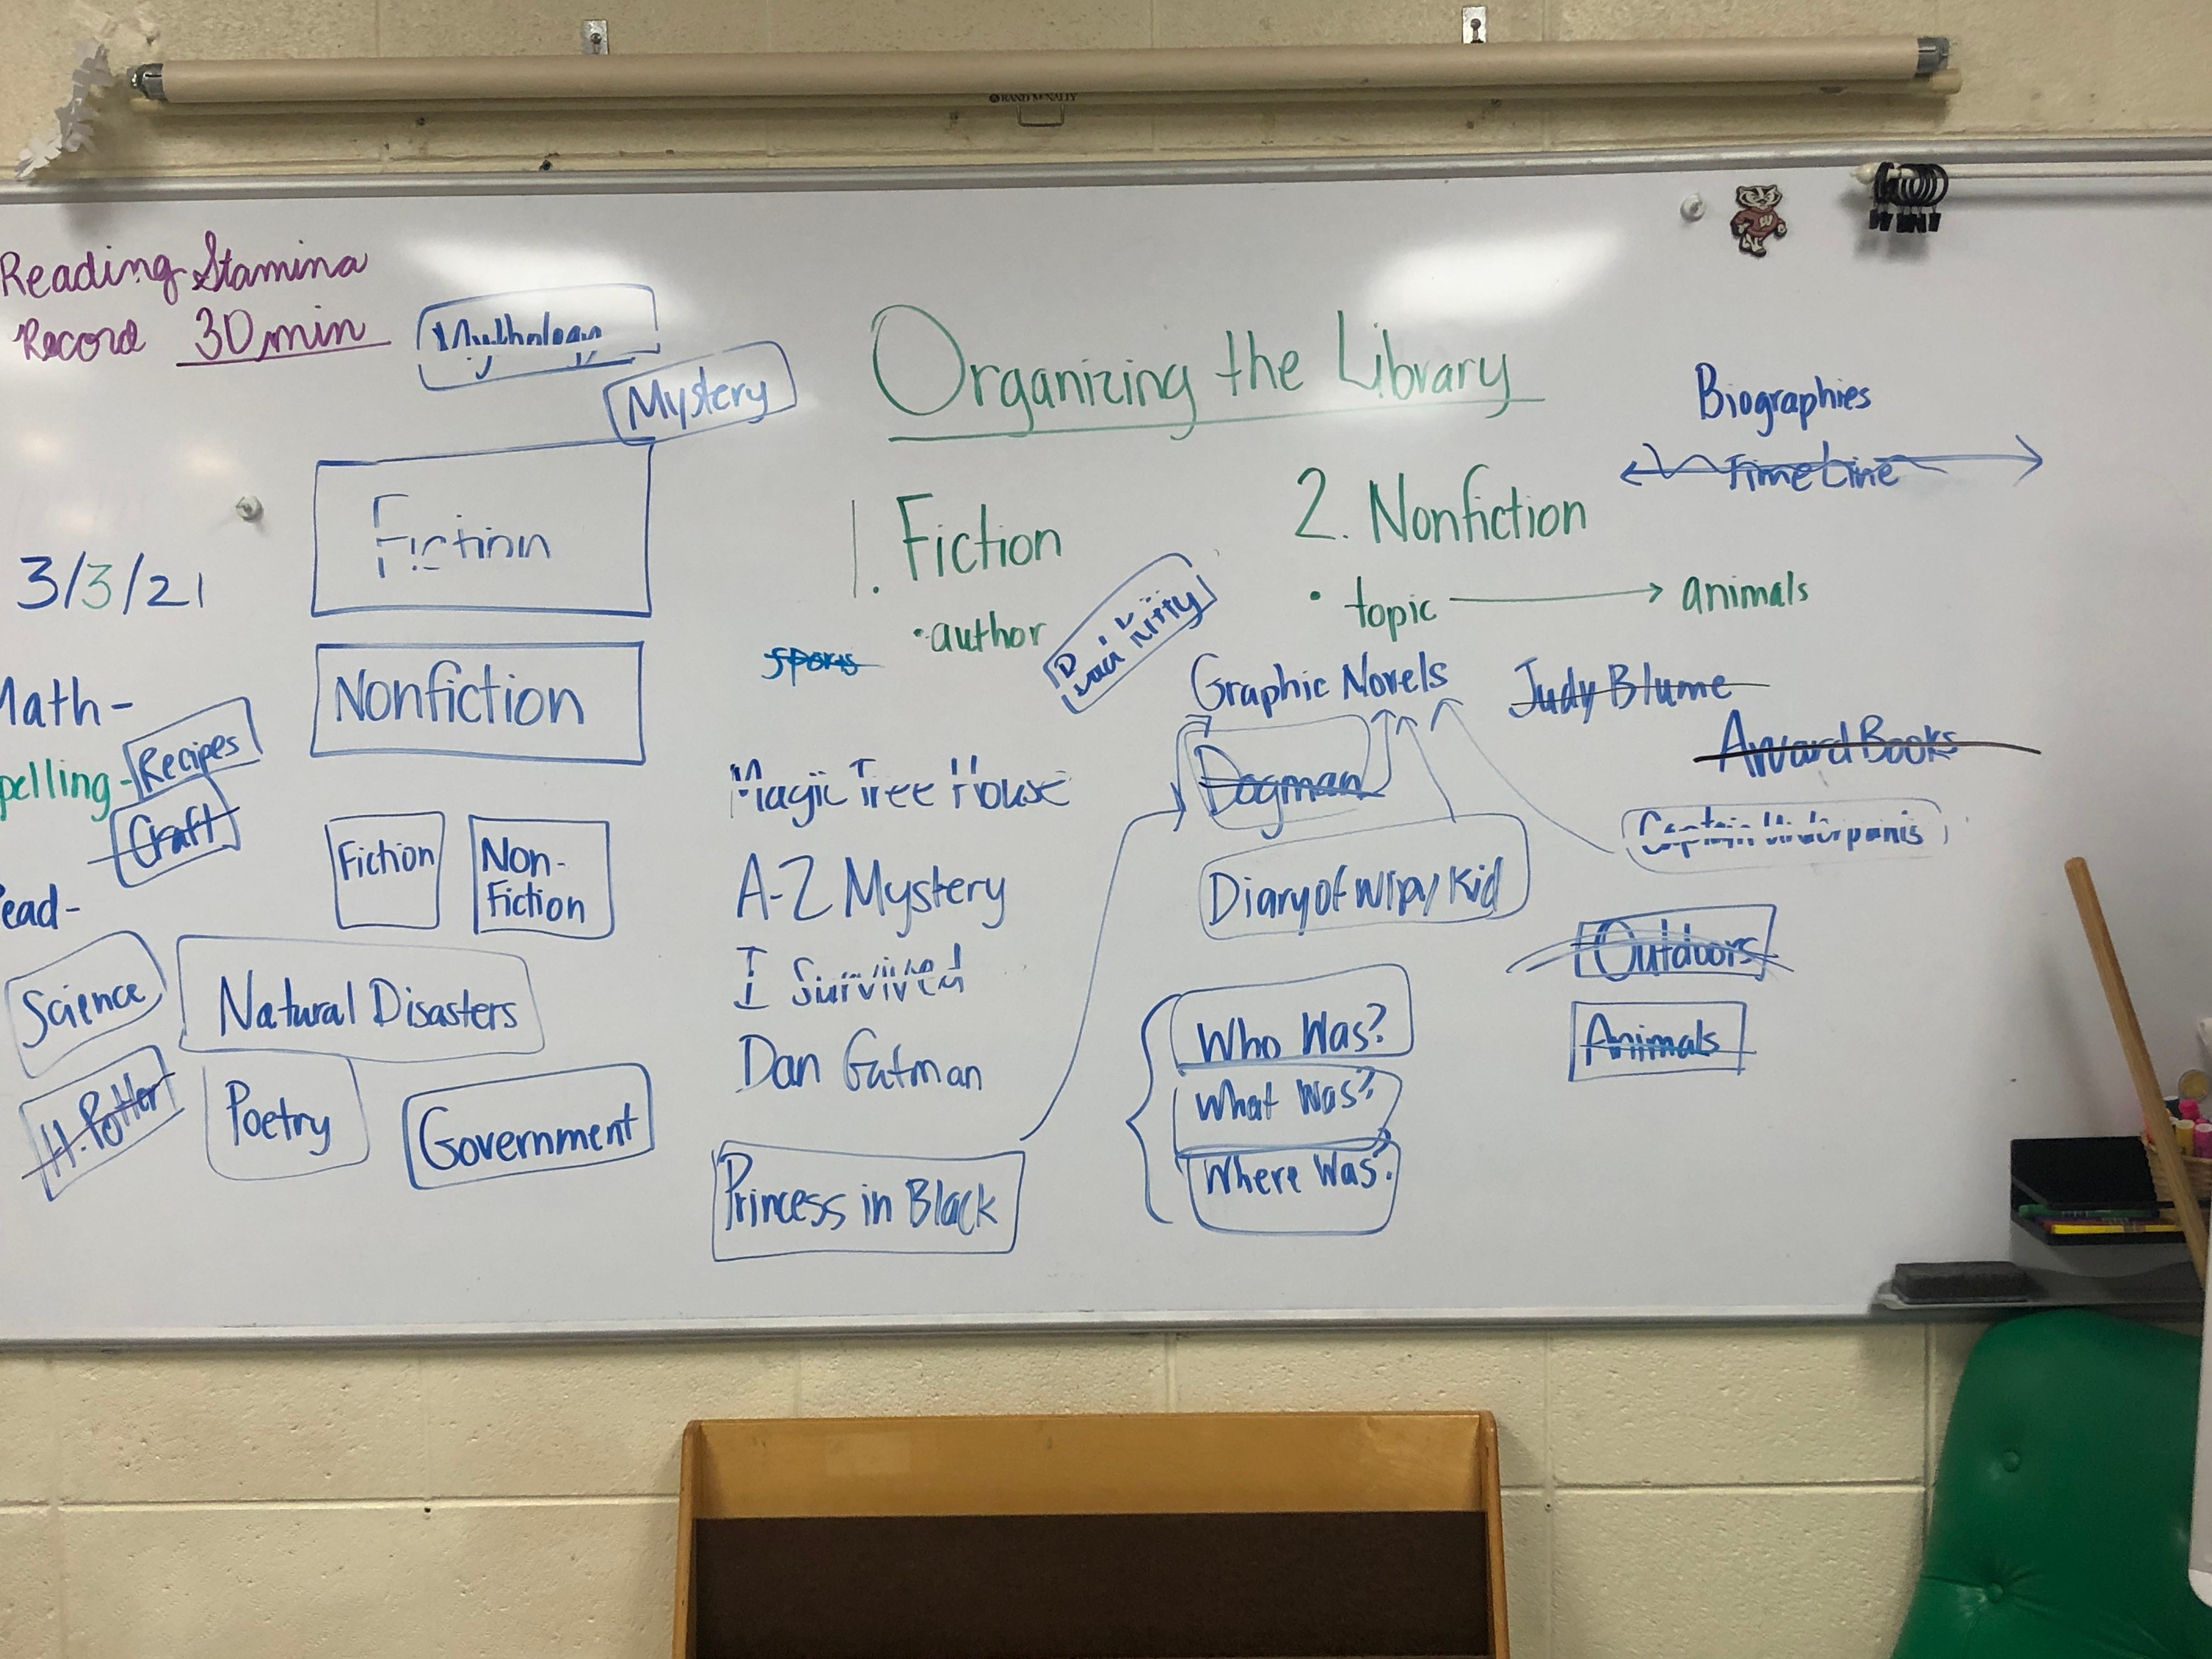 RAND McNALLY
Reading Stamina
Record 30 min
Mythology
Mystery
Organizing the Library
Biographies
TimeLine
Fiction
1. Fiction
• author
2. Nonfiction
• topic → animals
3/3/21
sports
Bad Kitty
Nonfiction
Math-
pelling-
Recipes
Craft
Graphic Novels
Judy Blume
Award Books
Magic Tree House
Dogman
Captain Underpants
Fiction
Non-
Fiction
A-Z Mystery
Diary of Wipy Kid
ead-
Outdoors
Science
Natural Disasters
I Survived
Who Was?
Animals
Dan Gutman
What Was?
H. Potter
Poetry
Government
Princess in Black
Where Was?
W